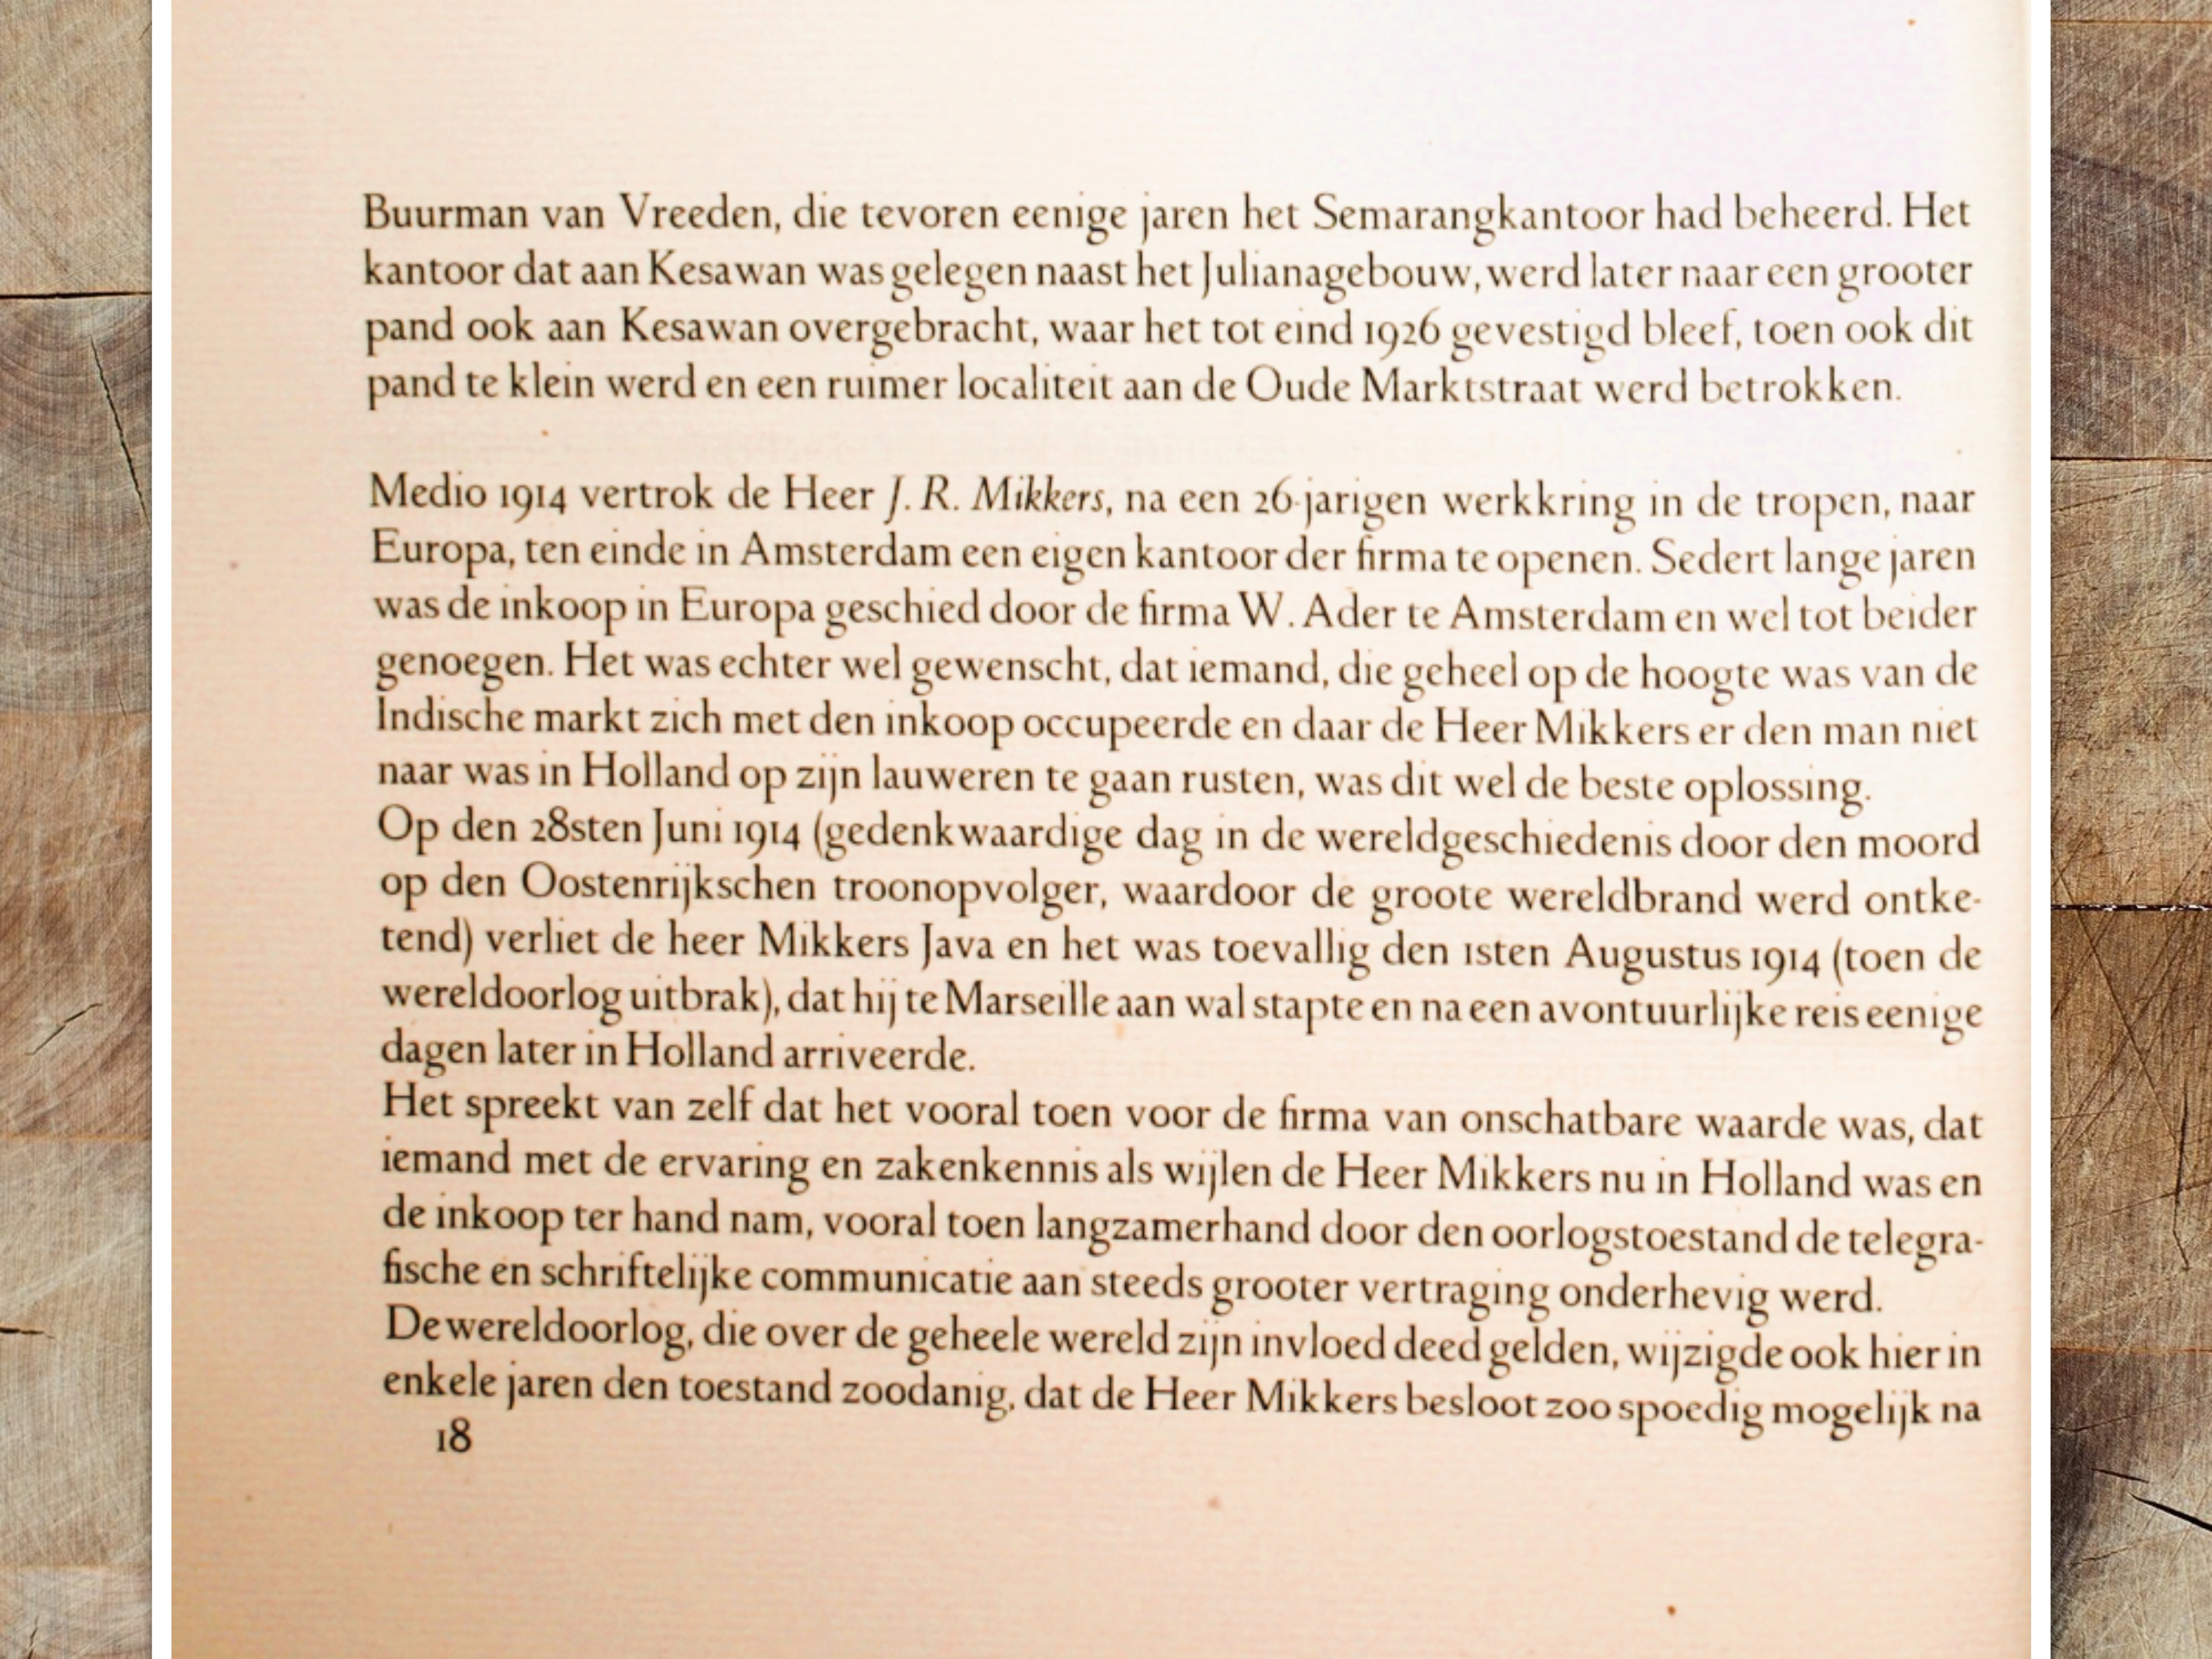 Buurman van Vreeden, die tevoren eenige jaren het Semarangkantoor had beheerd. Het
kantoor dat aan Kesawan was gelegen naast het Julianagebouw, werd later naar een grooter
pand ook aan Kesawan overgebracht, waar het tot eind 1926 gevestigd bleef, toen ook dit
pand te klein werd en een ruimer localiteit aan de Oude Marktstraat werd betrokken.
Medio 1914 vertrok de Heer J. R. Mikkers, na een 26-jarigen werkkring in de tropen, naar
Europa, ten einde in Amsterdam een eigen kantoor der firma te openen. Sedert lange jaren
was de inkoop in Europa geschied door de firma W. Ader te Amsterdam en wel tot beider
genoegen. Het was echter wel gewenscht, dat iemand, die geheel op de hoogte was van de
Indische markt zich met den inkoop occupeerde en daar de Heer Mikkers er den man niet
naar was in Holland op zijn lauweren te gaan rusten, was dit wel de beste oplossing.
Op den 28sten Juni 1914 (gedenkwaardige dag in de wereldgeschiedenis door den moord
op den Oostenrijkschen troonopvolger, waardoor de groote wereldbrand werd ontke-
tend) verliet de heer Mikkers Java en het was toevallig den 1sten Augustus 1914 (toen de
wereldoorlog uitbrak), dat hij te Marseille aan wal stapte en na een avontuurlijke reis eenige
dagen later in Holland arriveerde.
Het spreekt van zelf dat het vooral toen voor de firma van onschatbare waarde was, dat
iemand met de ervaring en zakenkennis als wijlen de Heer Mikkers nu in Holland was en
de inkoop ter hand nam, vooral toen langzamerhand door den oorlogstoestand de telegra-
fische en schriftelijke communicatie aan steeds grooter vertraging onderhevig werd.
De wereldoorlog, die over de geheele wereld zijn invloed deed gelden, wijzigde ook hier in
enkele jaren den toestand zoodanig, dat de Heer Mikkers besloot zoo spoedig mogelijk na
18